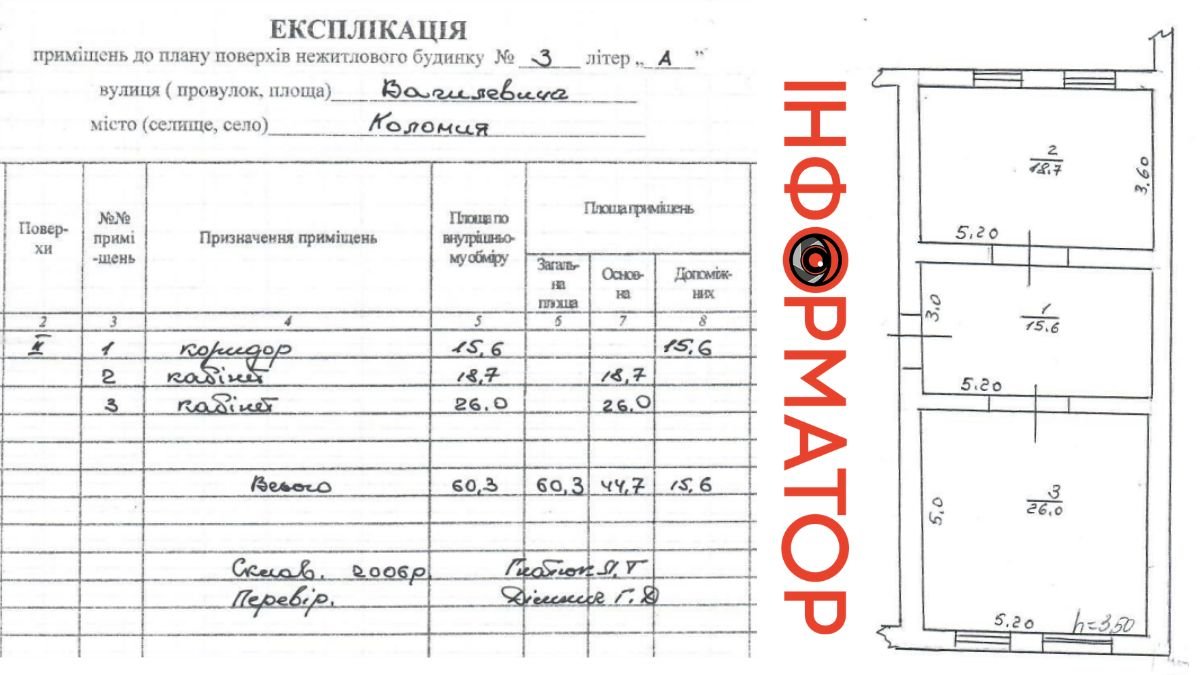 ЕКСПЛІКАЦІЯ
приміщень до плану поверхів нежитлового будинку № 3 літер „ А ”
вулиця ( провулок, площа) Вагилевича
місто (селище, село) Коломия
Повер-хи №№ примі-щень Призначення приміщень Площа по внутрішньо-му обміру Площа приміщень
Загаль-на площа Основ-на Допоміж-них
2 3 4 5 6 7 8
II 1 коридор 15,6 15,6
2 кабінет 18,7 18,7
3 кабінет 26.0 26.0
Всього 60,3 60,3 44,7 15,6
Склав. 2006р.
Перевір.
ІНФОРМАТОР
2
18.7
3.60
5.20
3.0
1
15.6
5.20
5.0
3
26.0
5.20
h=3,50